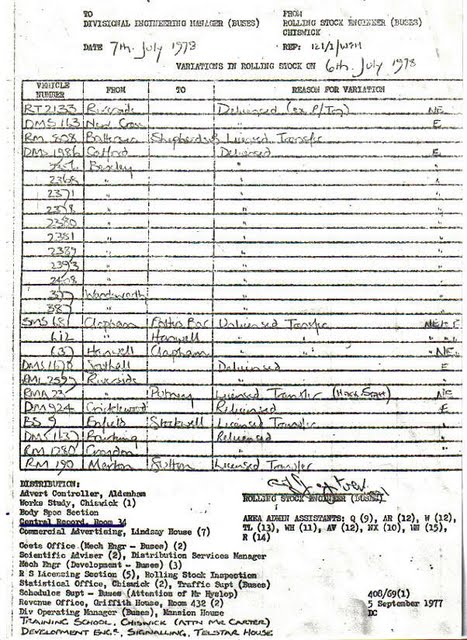 TO FROM
DIVISIONAL ENGINEERING MANAGER (BUSES) ROLLING STOCK ENGINEER (BUSES)
CHISWICK
DATE 7th July 1978 REF: 121/1/WPM
VARIATIONS IN ROLLING STOCK ON 6th July 1978
VEHICLE NUMBER FROM TO REASON FOR VARIATION
RT2133 Riverside Delicensed (ex P/Trg) NE
DMS 143 New Cross " E
RM 808 Battersea Shepherds Licensed Transfer
DMS 1986 Catford Delicensed E
Bexley " "
2368 " " "
2371 " " "
2378 " " "
2380 " " "
2381 " " "
2389 " " "
2393 " " "
2408 " " "
377 Wandsworth " "
387 " " "
SMS 681 Clapham Potters Bar Unlicensed Transfer
612 " Hanwell " "
637 Hanwell Clapham " NE
Southall Delicensed E
RML 2597 Riverside " "
RMA 23 " Putney Licensed Transfer NE
DM 924 Cricklewood Relicensed E
BS 9 Enfield Stockwell Licensed Transfer "
DMS Barking Relicensed "
RM 1280 Croydon " "
RM 190 Merton Sutton Licensed Transfer
DISTRIBUTION:
Advert Controller, Aldenham
Works Study, Chiswick (1) ROLLING STOCK ENGINEER (BUSES)
Body Spec Section
Central Record, Room 14
Commercial Advertising, Lindsay House (7)
AREA ADMIN ASSISTANTS: Q (9), AR (12), W (12),
TL (13), WH (11), AV (12), NX (10), WW (15),
R (14)
Costs Office (Mech Engr - Buses) (2)
Scientific Adviser (2), Distribution Services Manager
Mech Engr (Development - Buses) (3)
R S Licensing Section (5), Rolling Stock Inspection
Statistical Office, Chiswick (2), Traffic Supt (Buses)
Schedules Supt - Buses (Attention of Mr Hyslop)
Revenue Office, Griffith House, Room 432 (2) 408/69(1)
Div Operating Manager (Buses), Mansion House 5 September 1977
TRAINING SCHOOL, CHISWICK (ATTN MR CARTER) DC
DEVELOPMENT ENGR, SIGNALLING, TELSTAR HOUSE